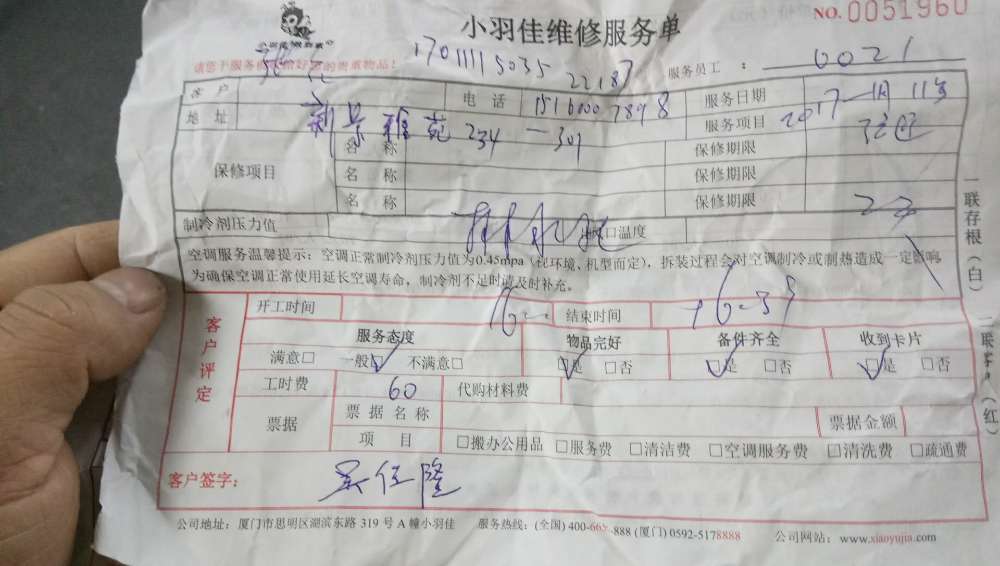 小羽佳维修服务单
NO. 0051960
请您予服务 好 的贵重物品！
17011115035
22187
服务员工 : 0021
客户
电话
服务日期 2017-11月11号
地址 新景雅苑 234-301
服务项目
保修项目
名称
保修期限
名称
保修期限
名称
保修期限
制冷剂压力值
风口温度
空调服务温馨提示：空调正常制冷剂压力值为0.45mpa（视环境、机型而定），拆装过程会对空调制冷或制热造成一定影响，
为确保空调正常使用延长空调寿命，制冷剂不足时请及时补充。
客户评定
开工时间
结束时间
服务态度
物品完好
备件齐全
收到卡片
满意□ 一般☑ 不满意□
☑是 □否
☑是 □否
☑是 □否
工时费 60
代购材料费
票据
票据名称
票据金额
项目
□搬办公用品 □服务费 □清洁费 □空调服务费 □清洗费 □疏通费
客户签字：
一联存根（白）
公司地址：厦门市思明区湖滨东路 319 号 A 幢小羽佳
服务热线：(全国) 400-665-888 (厦门) 0592-5178888
公司网站：www.xiaoyujia.com